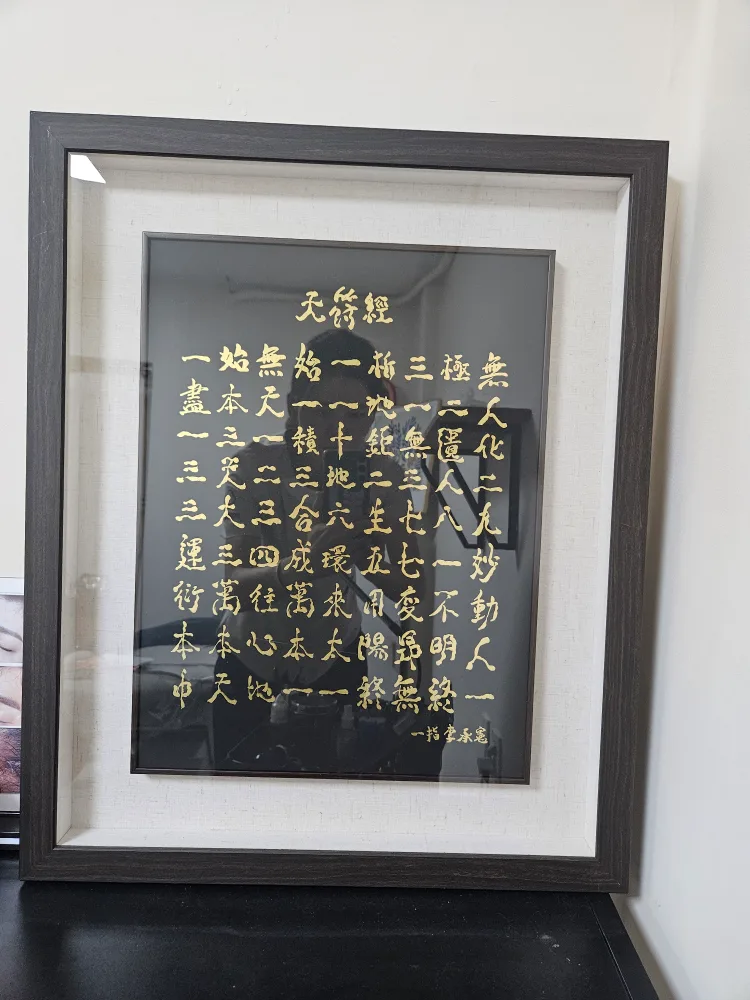 天符經
一始無始一析三極無
盡本天一一地一二人
一三一積十鉅無匱化
三天二三地二三人二
三大三合六生七八九
運三四成環五七一妙
衍萬往萬來用変不動
本本心本太陽昻明人
中天地一一終無終一
一指 李承憲